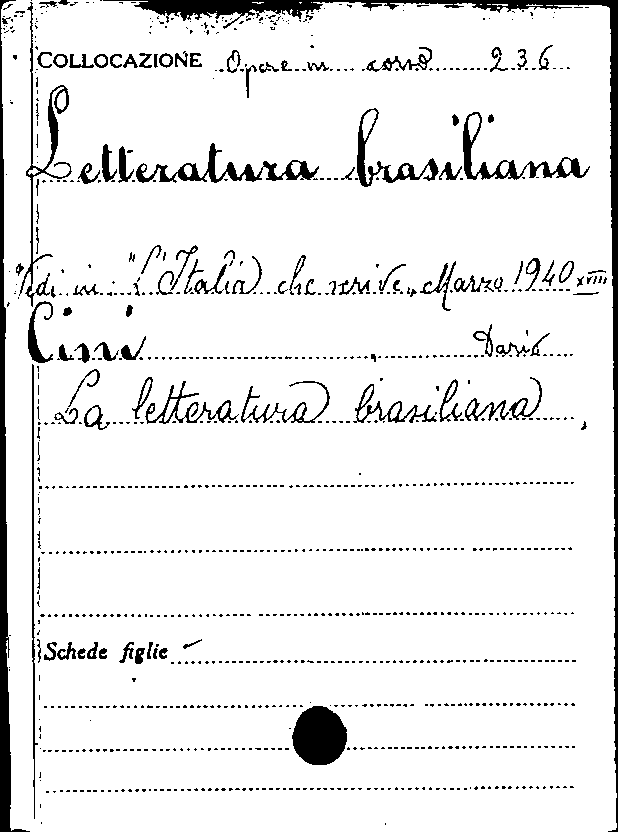 COLLOCAZIONE Opere in corso 236
Letteratura brasiliana
Vedi in: "L'Italia che scrive„ Marzo 1940 XVIII
Cini, Dario
La letteratura brasiliana
Schede figlie –